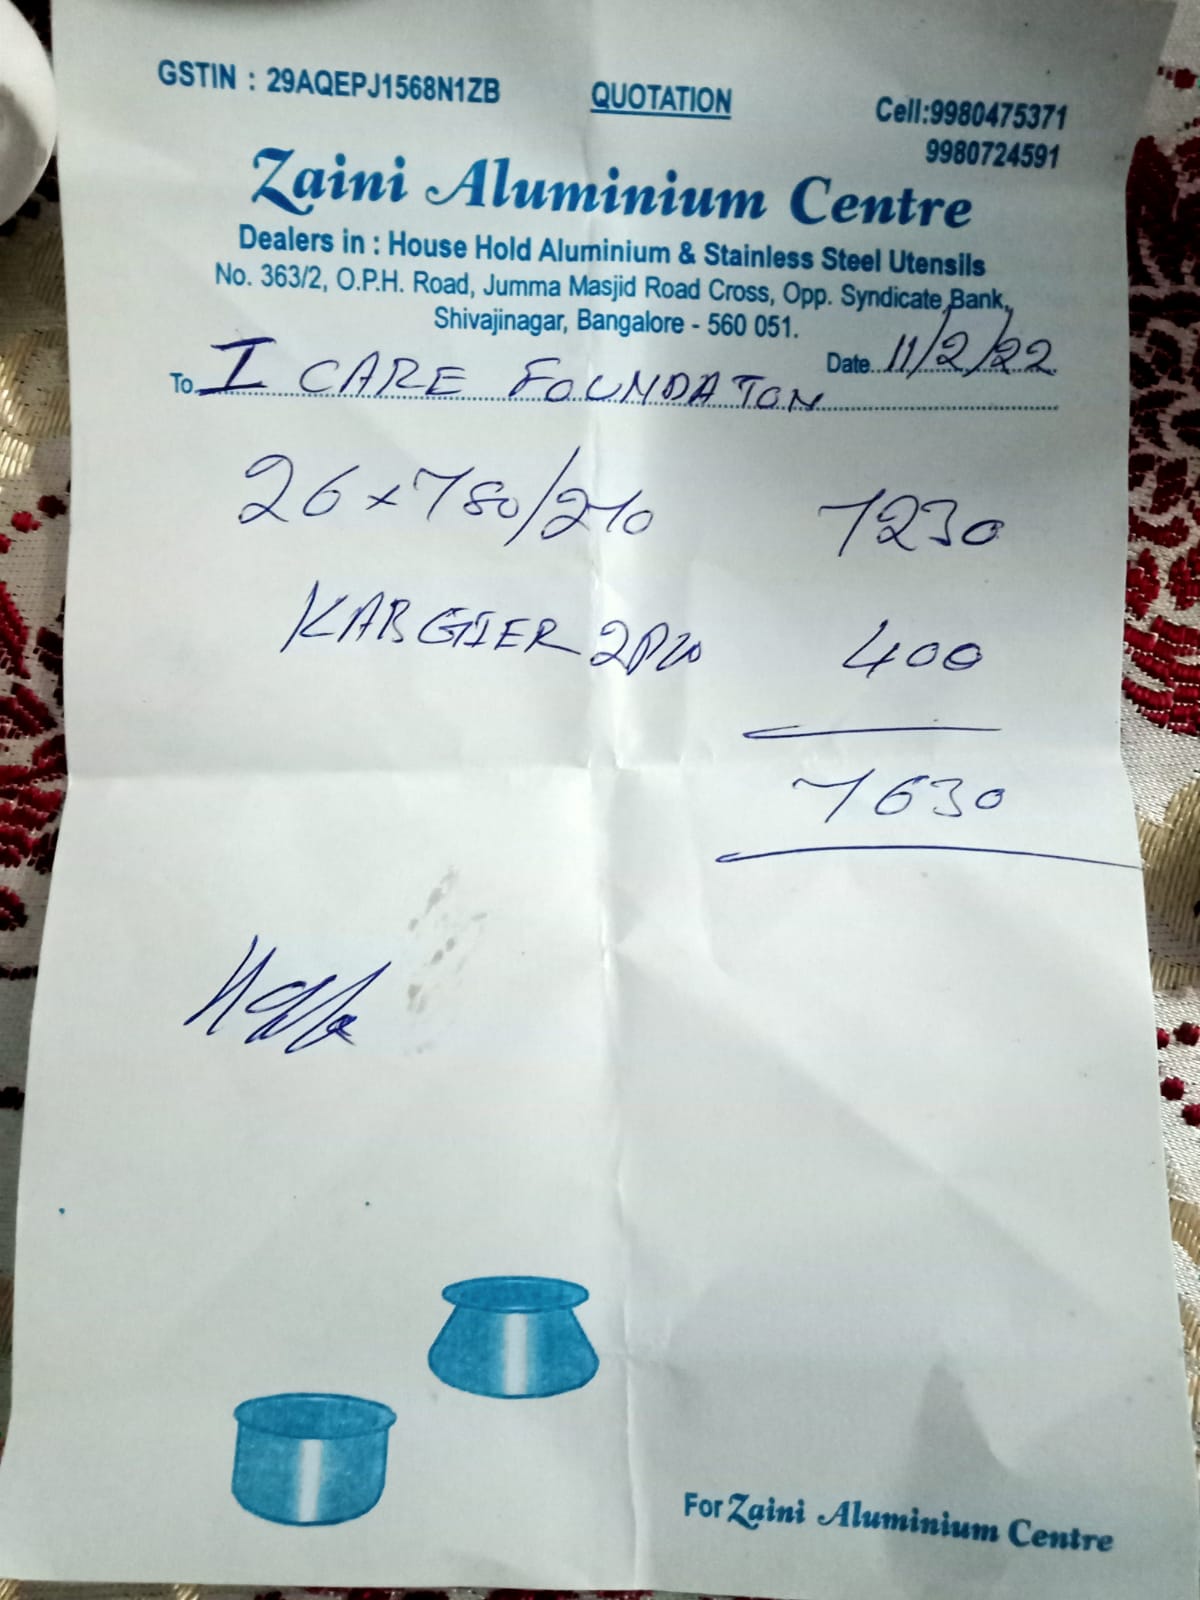 GSTIN : 29AQEPJ1568N1ZB
QUOTATION
Cell:9980475371
9980724591
Zaini Aluminium Centre
Dealers in : House Hold Aluminium & Stainless Steel Utensils
No. 363/2, O.P.H. Road, Jumma Masjid Road Cross, Opp. Syndicate Bank,
Shivajinagar, Bangalore - 560 051.
Date 11/2/22
To I CARE FOUNDATON
26 x 780/270 7230
KABGIER 400
7630
For Zaini Aluminium Centre